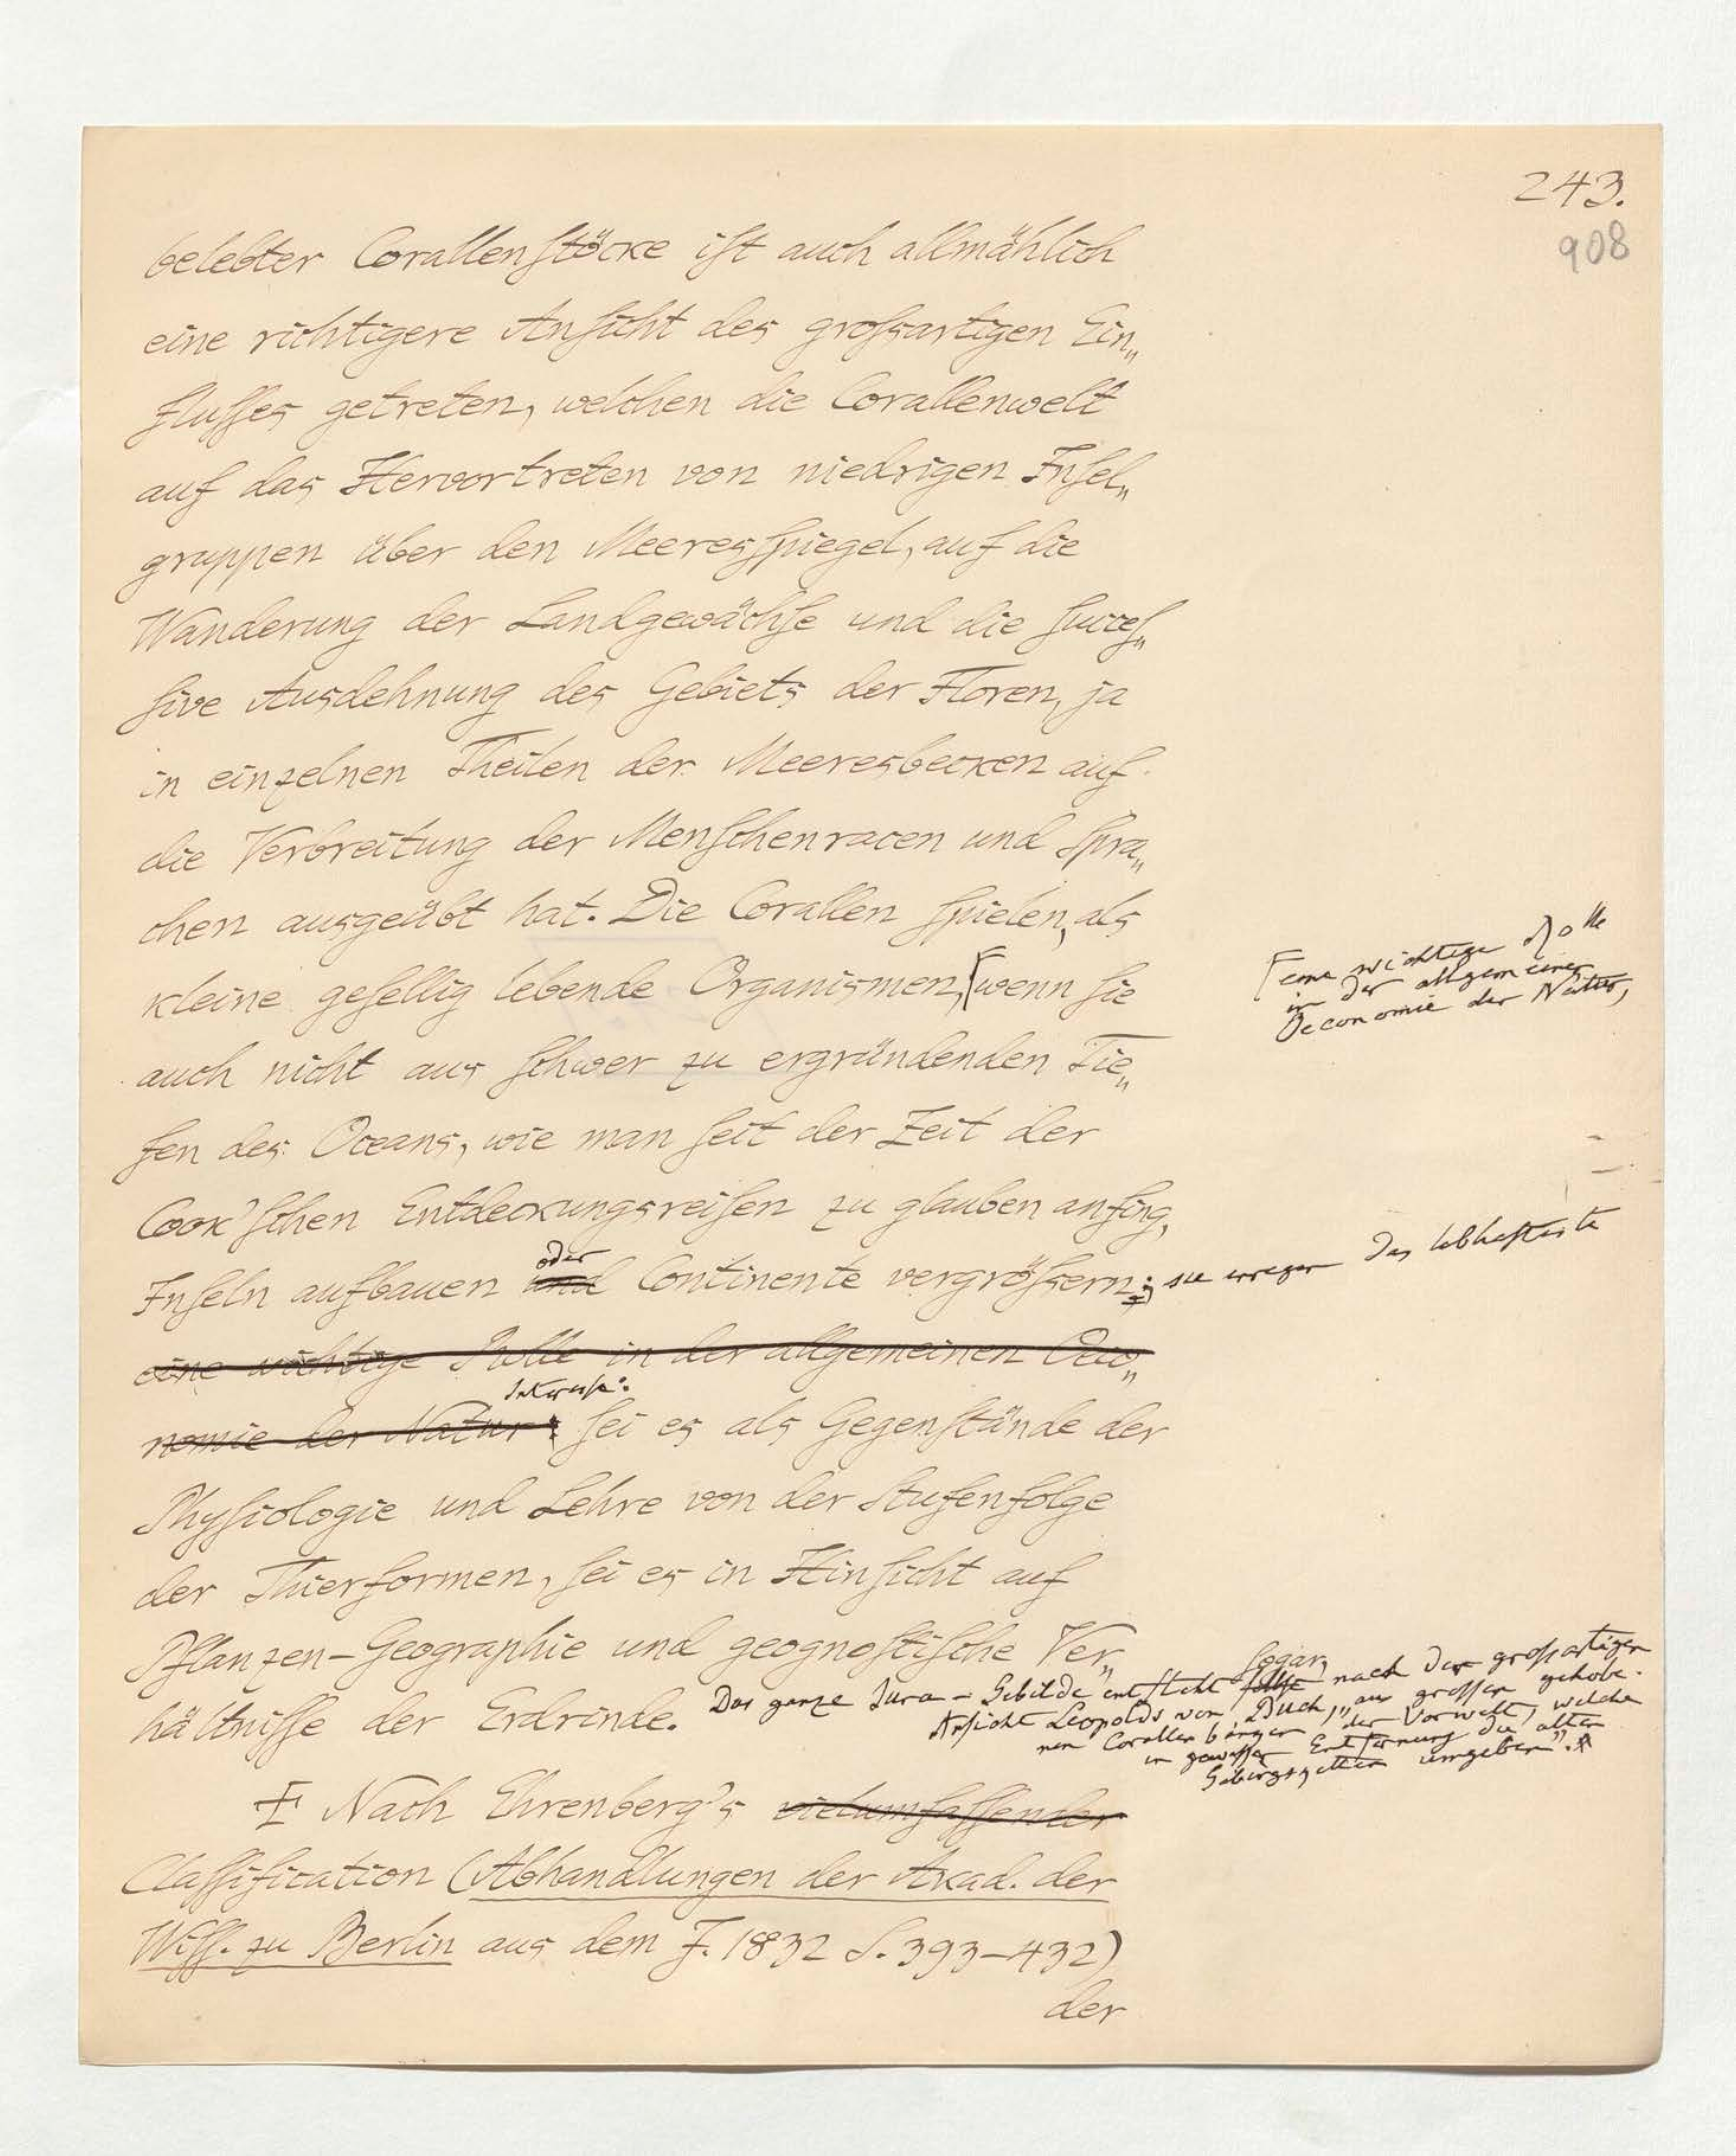 243.
908
belebter Corallenſtöcke iſt auch allmählich
eine richtigere Anſicht des groſsartigen Ein„
fluſſes getreten, welchen die Corallenwelt
auf das Hervortreten von niedrigen Inſel„
gruppen über den Meeresſpiegel, auf die
Wanderung der Landgewächſe und die ſucceſ„
ſive Ausdehnung des Gebiets der Floren, ja
in einzelnen Theilen der Meeresbecken auf
die Verbreitung der Menſchenracen und Spra„
chen ausgeübt hat. Die Corallen ſpielen, als
kleine geſellig lebende Organismen, ⌈wenn ſie
⌈eine wichtige Rolle
in der allgemeinen
Oeconomie der Natur,
auch nicht aus ſchwer zu ergründenden Tie„
fen des Oceans, wie man ſeit der Zeit der
Cook'ſchen Entdeckungsreiſen zu glauben anfing,
oder
Inſeln aufbauen und Continente vergröſsern; sie erregen das lebhafteste
eine wichtige Rolle in der allgemeinen Oeco„
Interesse:
nomie der Natur: ſei es als Gegenſtände der
Phyſiologie und Lehre von der Stufenfolge
der Thierformen, ſei es in Hinſicht auf
Pflanzen-Geographie und geognoſtiſche Ver„
hältniſſe der Erdrinde. Das ganze Jura-Gebilde entſteht ſogar, nach der groſsartigen
Anſicht Leopolds von Buch, „aus groſsen gehobe-
nen Corallenbänken der Vorwelt, welche
in gewiſſer Entfernung die alten
Gebirgsketten umgeben“.
‡ Nach Ehrenberg's vielumfaſſender
Claſſification (Abhandlungen der Akad. der
Wiſſ. zu Berlin aus dem J. 1832 S. 393-432)
der